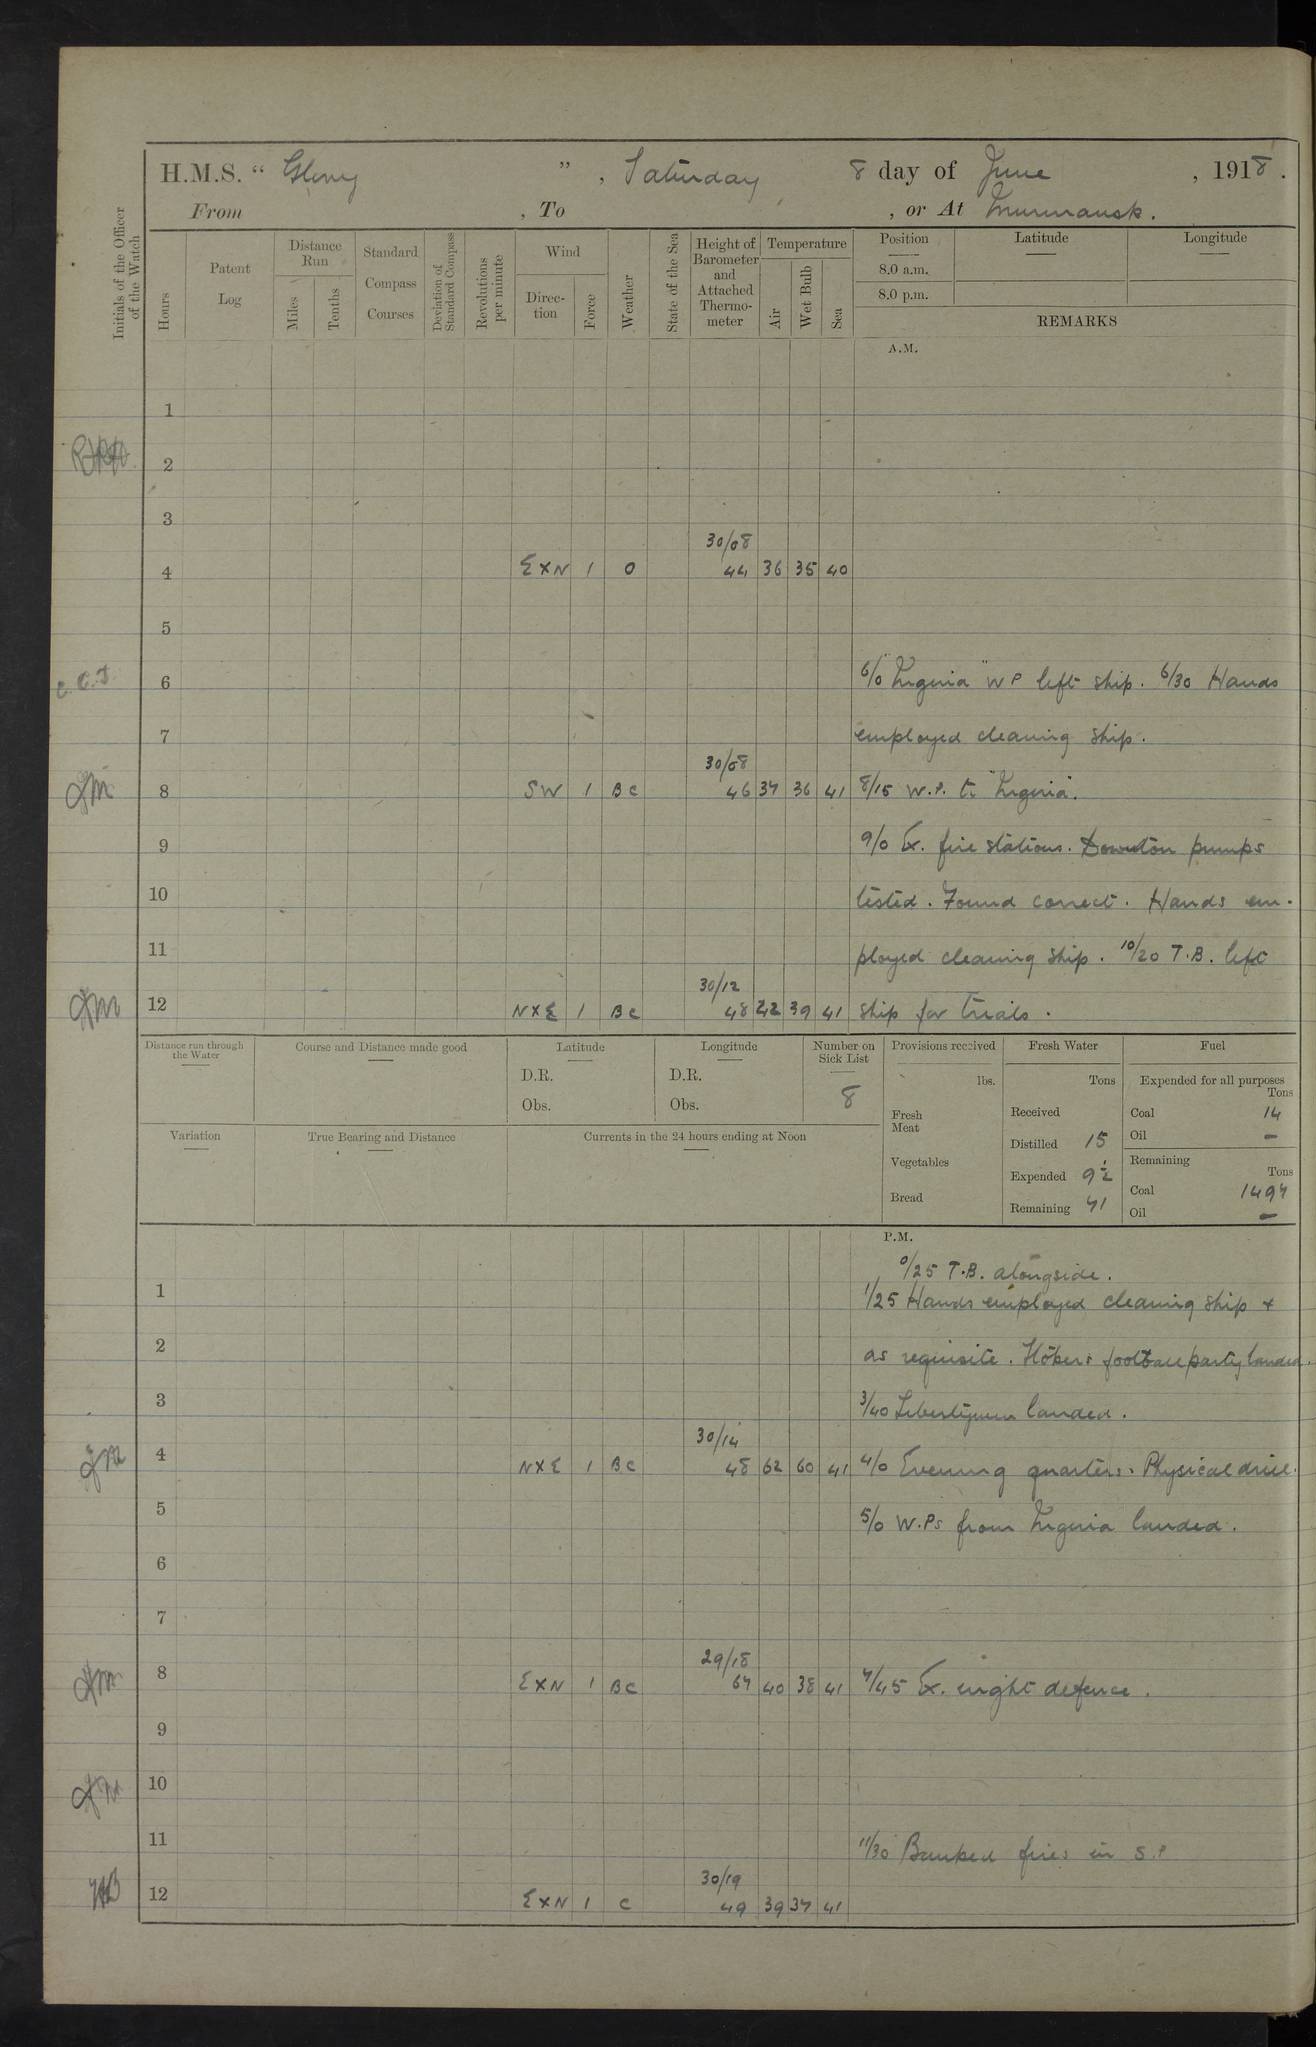 H.M.S. " Glory ", Saturday 8 day of June, 1918.
From , To , or At Murmansk.
Initials of the Officer of the Watch
Hours
Patent Log
Distance Run
Miles
Tenths
Standard Compass Courses
Deviation of Standard Compass
Revolutions per minute
Wind
Direc-tion
Force
Weather
State of the Sea
Height of Barometer and Attached Thermo-meter
Temperature
Air
Wet Bulb
Sea
Position
Latitude
Longitude
8.0 a.m.
8.0 p.m.
REMARKS
A.M.
1
2
3
30/08
4 EXN 1 O 44 36 35 40
5
C.C.J. 6 6/0 "Nigeria" W P left ship. 6/30 Hands
7 employed cleaning ship.
30/08
8 SW 1 BC 46 37 36 41 8/15 W.P. to "Nigeria".
9 9/0 Ex. fire stations. Downton pumps
10 tested. Found correct. Hands em-
11 ployed cleaning ship. 10/20 T.B. left
30/12
12 NXE 1 BC 48 42 39 41 ship for trials.
Distance run through the Water
Course and Distance made good
Latitude
D.R.
Obs.
Longitude
D.R.
Obs.
Number on Sick List
8
Provisions received
lbs.
Fresh Meat
Vegetables
Bread
Fresh Water
Tons
Received
Distilled 15
Expended 9½
Remaining 71
Fuel
Expended for all purposes
Tons
Coal 14
Oil –
Remaining
Tons
Coal 1497
Oil –
Variation
True Bearing and Distance
Currents in the 24 hours ending at Noon
P.M.
0/25 T.B. alongside.
1 1/25 Hands employed cleaning ship +
2 as requisite. football party landed.
3 3/40 Libertymen landed.
30/14
4 NXE 1 BC 48 62 60 41 4/0 Evening quarters. Physical drill.
5 5/0 W.Ps from Nigeria landed.
6
7
29/18
8 EXN 1 BC 67 40 38 41 7/45 Ex. night defence.
9
10
11 11/30 Banked fires in S.P
30/19
12 EXN 1 C 49 39 37 41